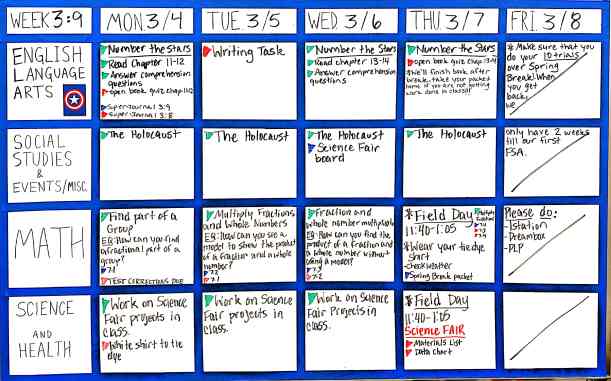 WEEK 3:9
MON. 3/4
TUE 3/5
WED. 3/6
THU. 3/7
FRI. 3/8
ENGLISH
LANGUAGE
ARTS
Number the Stars
Read Chapter 11-12
Answer comprehension
questions
open book quiz chap 11-12
SuperJournal 3:9
SuperJournal 3:8
Writing Task
Number the Stars
Read chapter 13-14
Answer comprehension
questions
Number the Stars
open book quiz chap 13-14
*We'll finish book after
break, take your packet
home if you are not getting
work done in class!!
* Make sure that you
do your 10 trials
over Spring
Break! When
you get
back,
we
SOCIAL
STUDIES
&
EVENTS/MISC.
The Holocaust
The Holocaust
The Holocaust
Science Fair
board
The Holocaust
only have 2 weeks
till our first
FSA.
MATH
Find part of a
Group
EQ: How can you find
a fractional part of a
group?
7-1
TEST CORRECTIONS DUE
Multiply Fractions
and Whole Numbers
EQ: How can you use a
model to show the product
of a fraction and a whole
number?
7-2
7-1
Fraction and
whole number multiplication
EQ: How can you find the
product of a fraction and
a whole number without
using a model?
7-3
7-2
*Field Day
11:40-1:05
*Wear your tie dye
shirt
-check weather
Spring Break packet
Multiply
Fractions
Please do:
-Istation
-Dreambox
-PLP
SCIENCE
AND
HEALTH
Work on Science
Fair projects in
class.
White shirt to tie
dye
Work on Science
Fair projects in
class.
Work on Science
Fair Projects in
class.
*Field Day
11:40-1:05
Science FAIR
Materials List
Data Chart